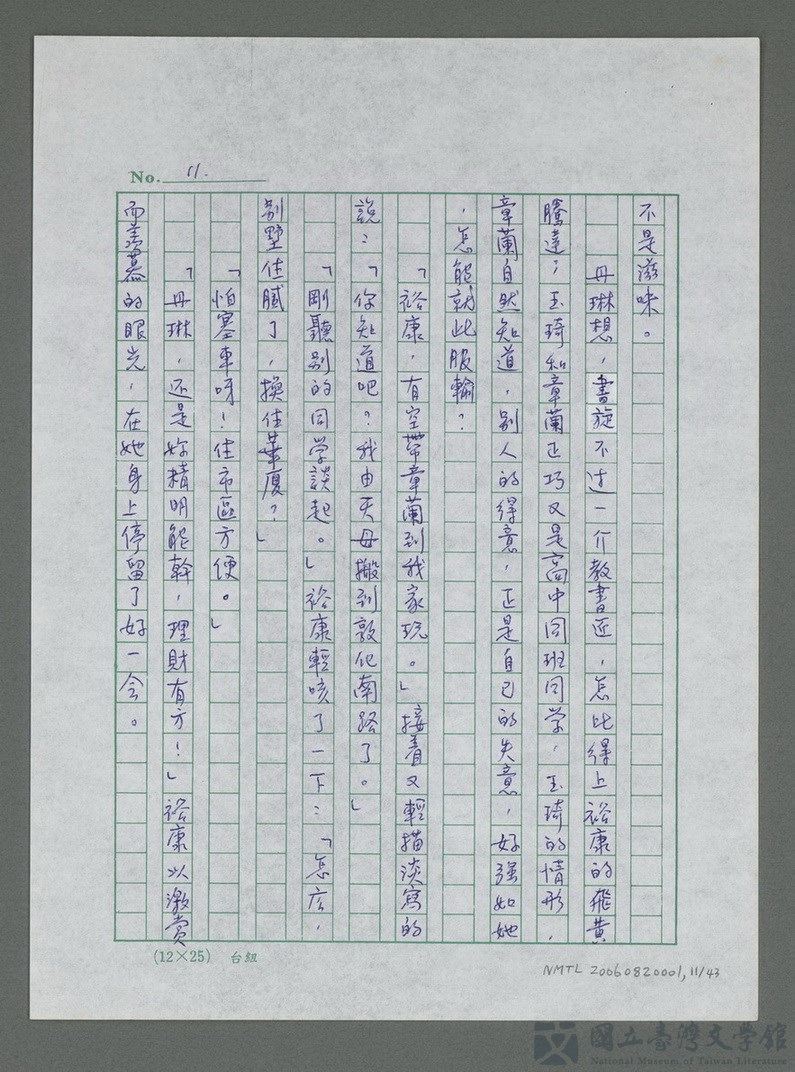 No. 11.
不是滋味。
丹琳想，書旋不过一介教書匠，怎比得上裕康的飛黃
騰達；玉琦和章蘭正巧又是高中同班同学，玉琦的情形，
章蘭自然知道，別人的得意，正是自己的失意，好强如她
，怎能就此服輸？
「裕康，有空帶章蘭到我家玩。」接着又輕描淡寫的
說：「你知道吧？我由天母搬到敦化南路了。」
「剛聽別的同学談起。」裕康輕咳了一下：「怎広，
別墅住膩了，換住華厦？」
「怕塞車呀！住市區方便。」
「丹琳，还是妳精明能幹，理財有方！」裕康以激賞
而羨慕的眼光，在她身上停留了好一会。
(12×25) 台紐
NMTL 20060820001, 11/43
國立臺灣文學館
National Museum of Taiwan Literature